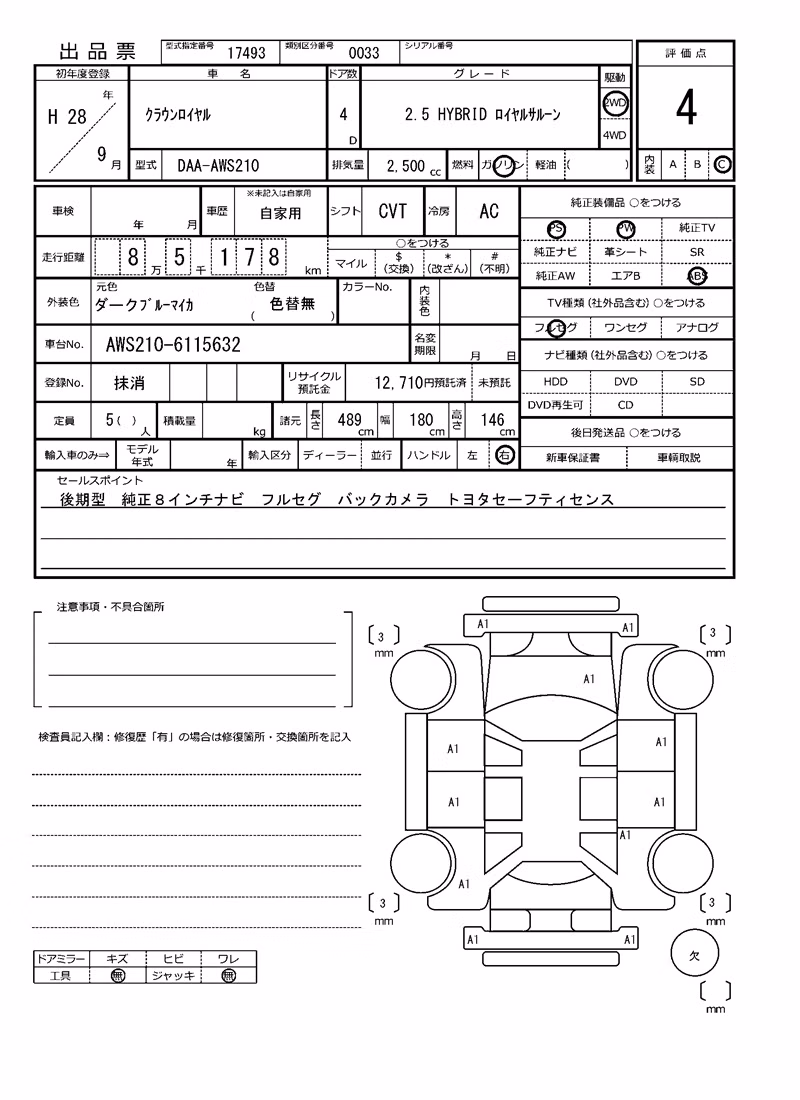 出品票 型式指定番号 17493 類別区分番号 0033 シリアル番号
評価点
初年度登録 車名 ドア数 グレード 駆動
H 28 年 9 月 クラウンロイヤル 4 D 2.5 HYBRID ロイヤルサルーン 2WD 4WD
4
型式 DAA-AWS210 排気量 2,500 cc 燃料 ガソリン 軽油 ( )
内装 A B C
車検 年 月 車歴 ※未記入は自家用 自家用 シフト CVT 冷房 AC
走行距離 8 万 5 千 1 7 8 km ○をつける マイル $(交換) *(改ざん) #(不明)
外装色 元色 ダークブルーマイカ 色替 ( 色替無 ) カラーNo. 内装色
車台No. AWS210-6115632 名変期限 月 日
登録No. 抹消 リサイクル預託金 12,710円預託済 未預託
定員 5( ) 人 積載量 kg 諸元 長さ 489 cm 幅 180 cm 高さ 146 cm
輸入車のみ⇒ モデル年式 年 輸入区分 ディーラー 並行 ハンドル 左 右
純正装備品 ○をつける
PS PW 純正TV
純正ナビ 革シート SR
純正AW エアB ABS
TV種類(社外品含む)○をつける
フルセグ ワンセグ アナログ
ナビ種類(社外品含む)○をつける
HDD DVD SD
DVD再生可 CD
後日発送品 ○をつける
新車保証書 車輌取説
セールスポイント
後期型 純正8インチナビ フルセグ バックカメラ トヨタセーフティセンス
注意事項・不具合箇所
検査員記入欄:修復歴「有」の場合は修復箇所・交換箇所を記入
ドアミラー キズ ヒビ ワレ
工具 無 ジャッキ 無
A1 A1
[3] mm [3] mm
A1
A1 A1
A1 A1
A1
A1
[3] mm [3] mm
A1 A1
欠
[ ] mm